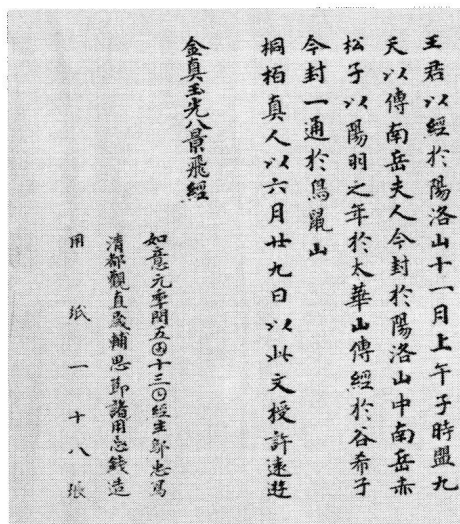 王君以經於陽洛山十一月上午子時盟九
天以傳南岳夫人今封於陽洛山中南岳赤
松子以陽羽之年於太華山傳經於谷希子
今封一通於鳥鼠山
桐柏真人以六月廿九日以此文授許遠遊
金真玉光八景飛經
如意元年閏五囝十三𡆠經生鄔忠寫
清都觀直歲輔思節諸用忌錢造
用紙一十八張